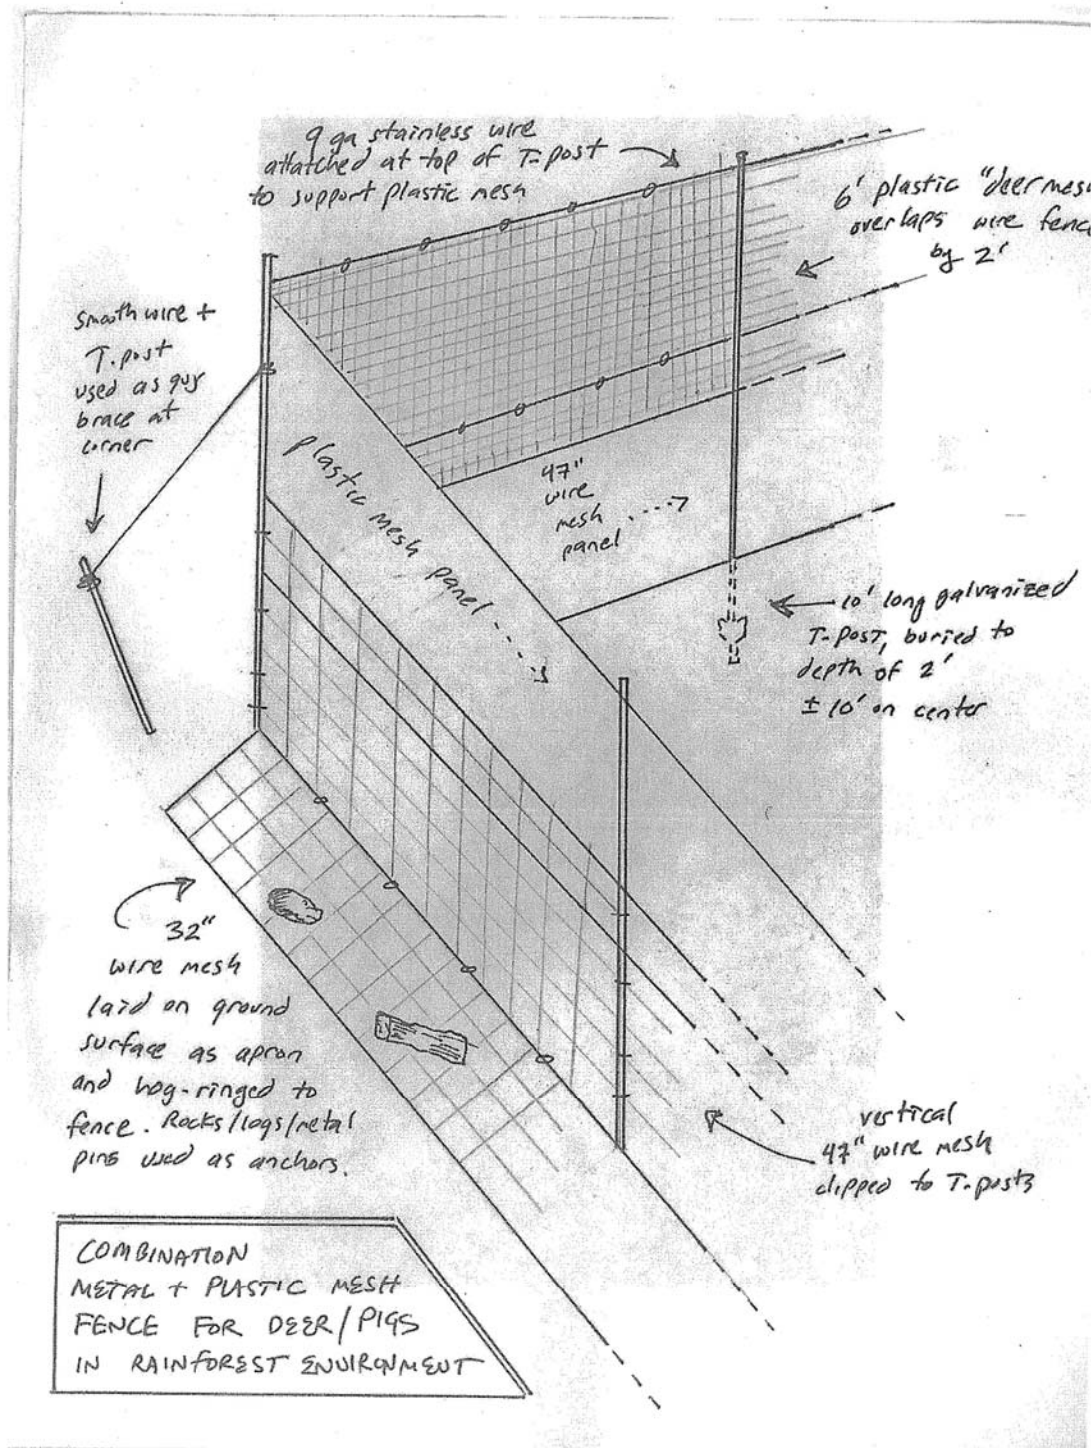 9 ga stainless wire
attatched at top of T-post
to support plastic mesh
6' plastic "deer mesh
overlaps wire fenc
by 2'
smooth wire +
T.post
used as guy
brace at
corner
plastic mesh panel
47"
wire
mesh
panel
10' long galvanized
T-post, buried to
depth of 2'
± 10' on center
32"
wire mesh
laid on ground
surface as apron
and hog-ringed to
fence. Rocks/logs/metal
pins used as anchors.
vertical
47" wire mesh
clipped to T-posts
COMBINATION
METAL + PLASTIC MESH
FENCE FOR DEER/PIGS
IN RAINFOREST ENVIRONMENT